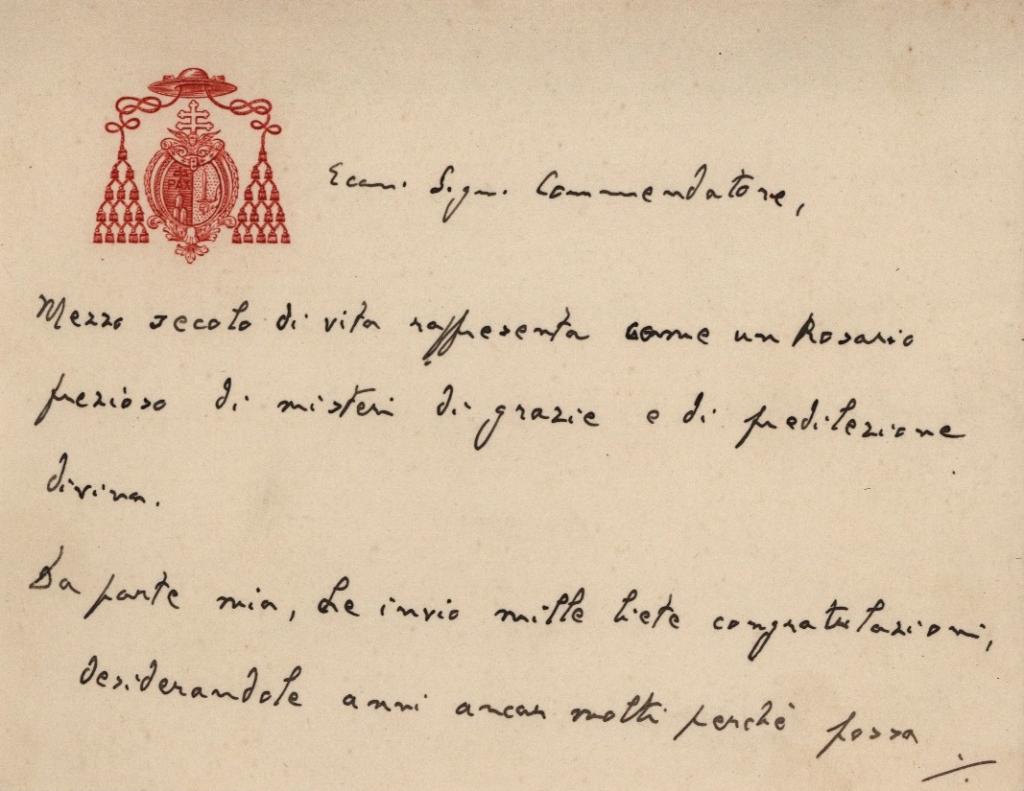 PAX
Eccmo. Sign. Commendatore,
Mezzo secolo di vita rappresenta come un Rosario
prezioso di misteri di grazie e di predilezione
divina.
Da parte mia, Le invio mille liete congratulazioni,
desiderandole anni ancor molti perchè possa